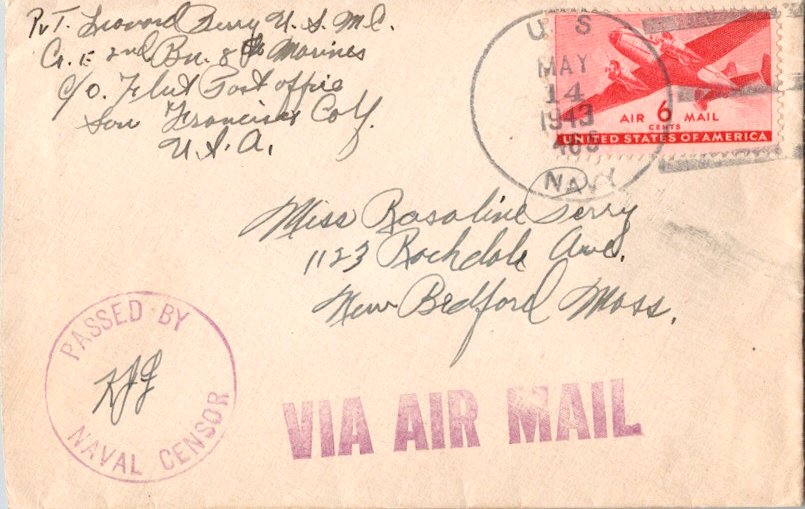 Pvt. Leonard Serry U.S.M.C.
Co. E 2nd Bn. 8th Marines
c/o. Fleet Post office
San Francisco Calf.
U.S.A.
U S
MAY
14
1943
NAVY
AIR 6 MAIL
CENTS
UNITED STATES OF AMERICA
Miss Rosaline Serry
1123 Rochdale Ave.
New Bedford Mass.
PASSED BY
NAVAL CENSOR
VIA AIR MAIL